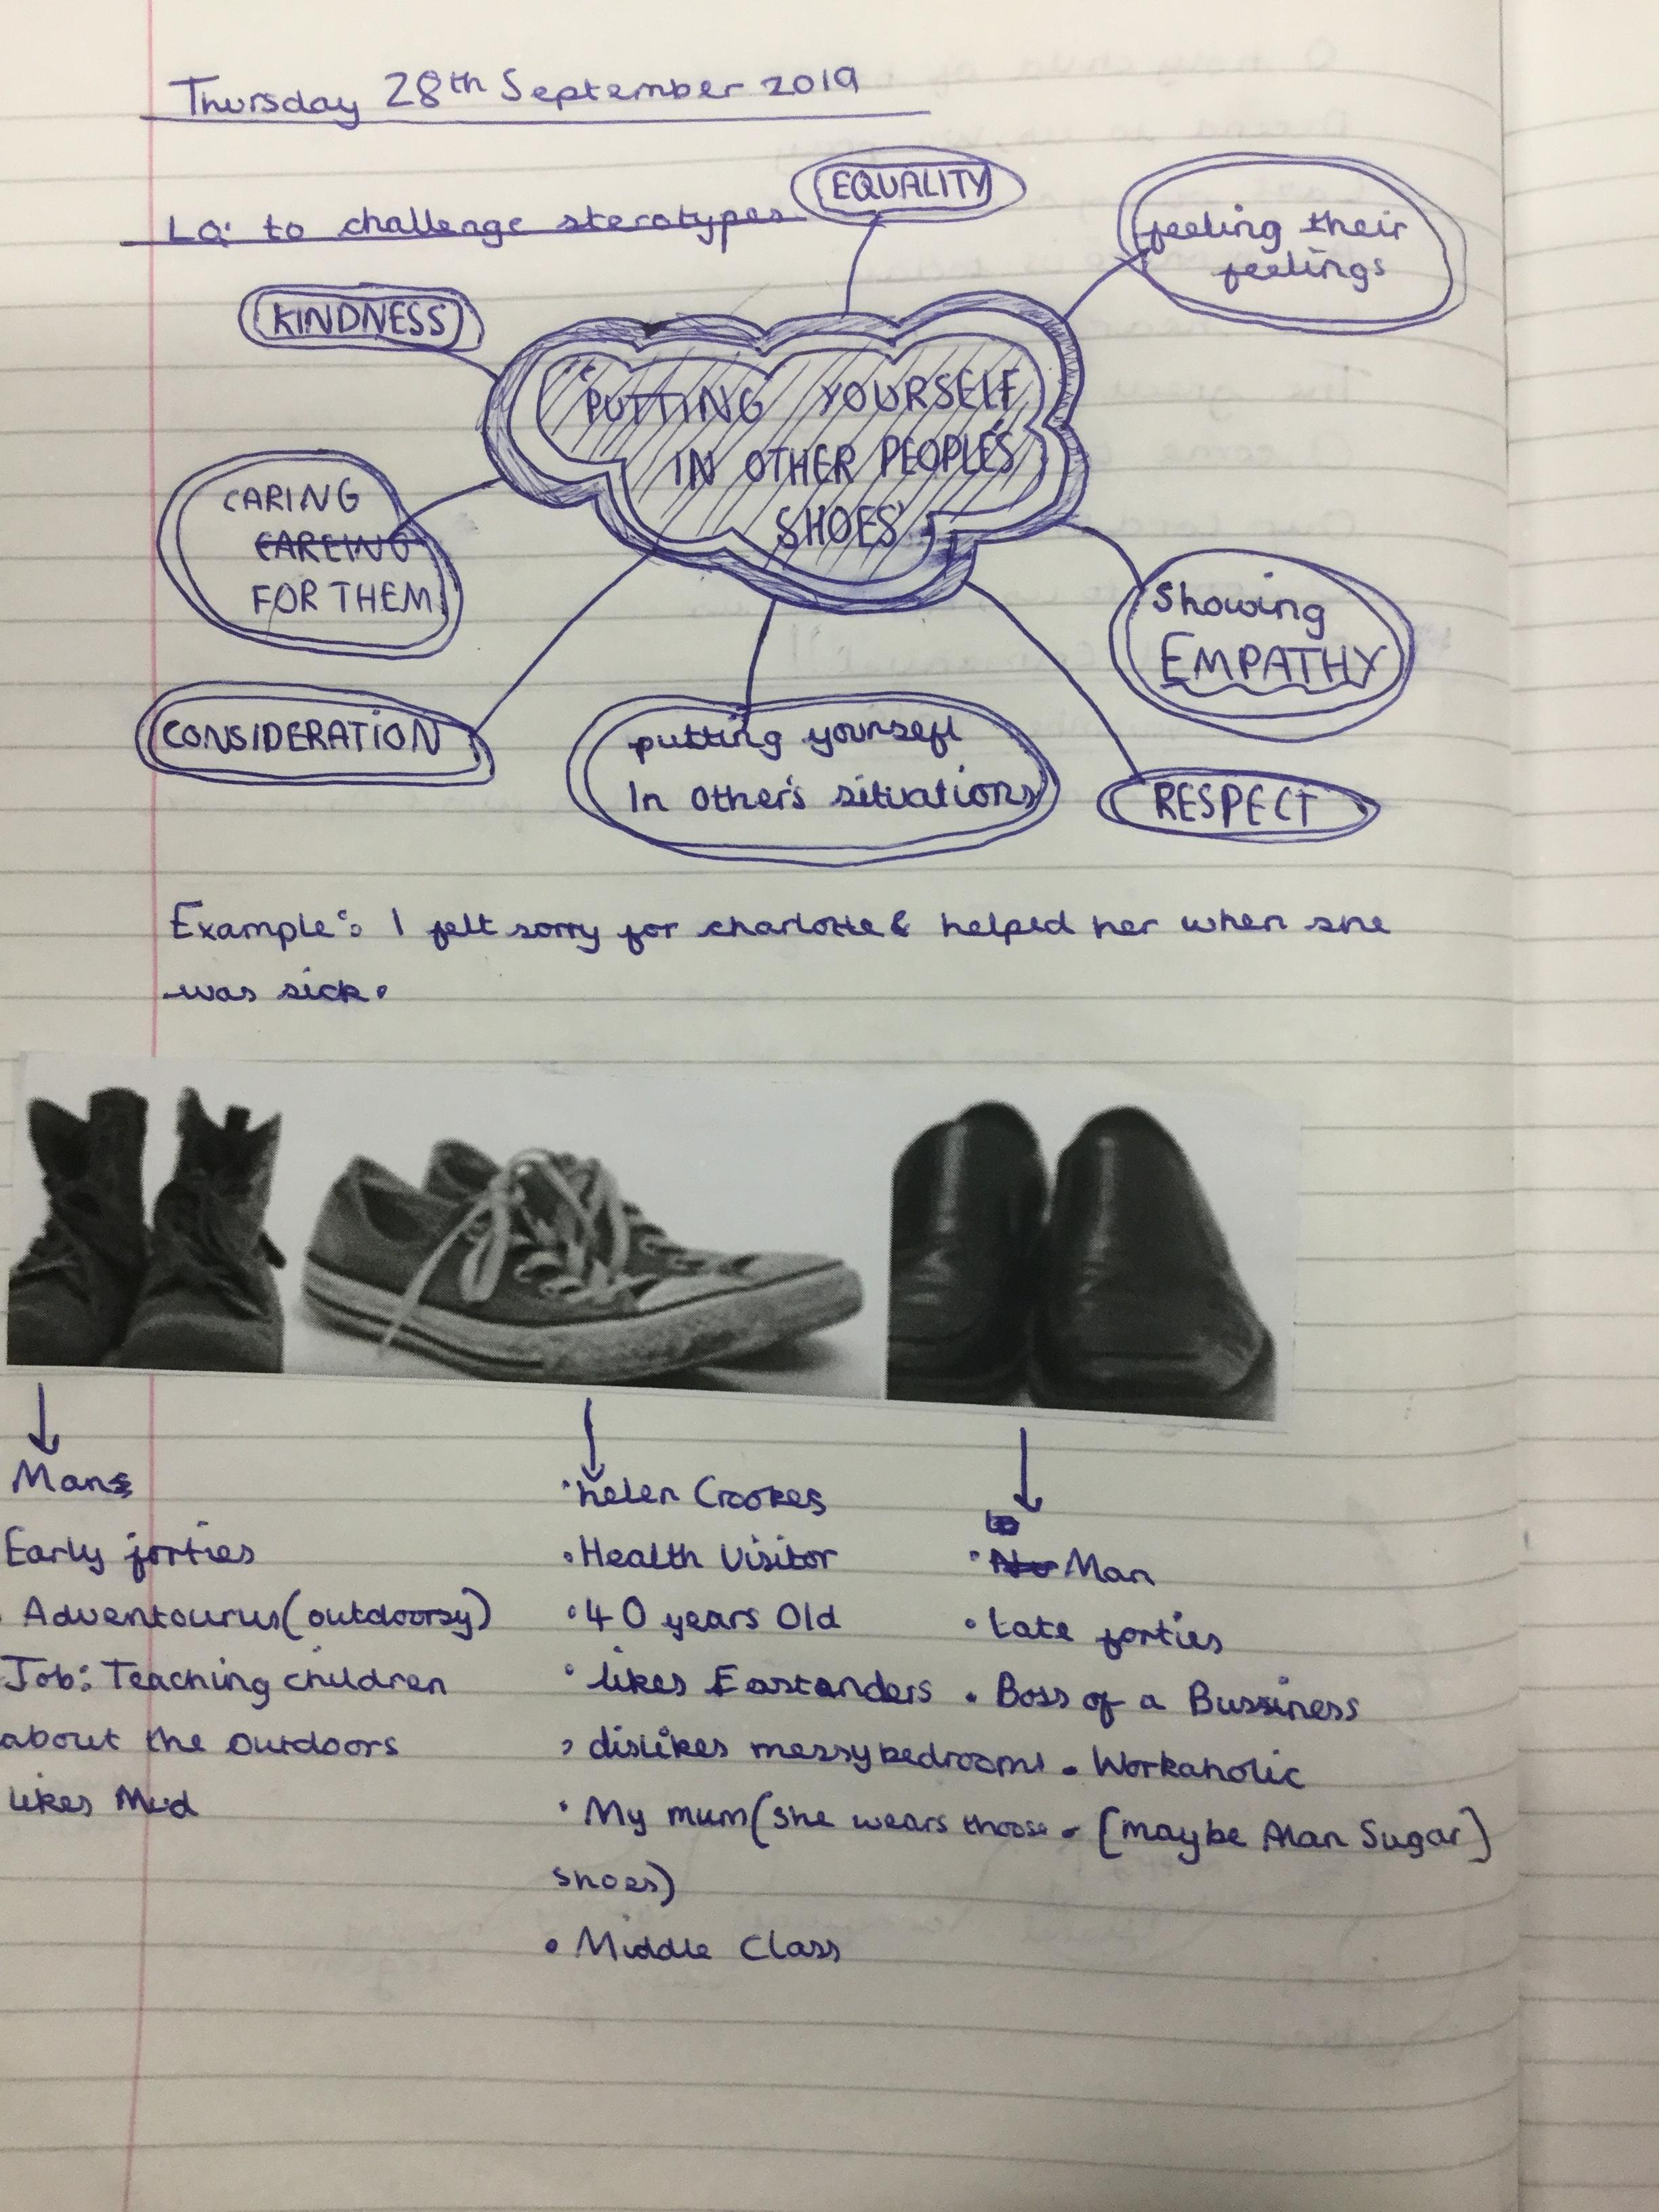 Thursday 28th September 2019
LO: to challenge sterotypes
EQUALITY
feeling their
feelings
KINDNESS
'PUTTING YOURSELF
IN OTHER PEOPLE'S
SHOES'
CARING
CAREING
FOR THEM
Showing
EMPATHY
CONSIDERATION
putting yourself
In other's situations
RESPECT
Example: I felt sorry for charlotte & helped her when she
was sick.
Mans
Early forties
Adventourus (outdoorsy)
Job: Teaching children
about the outdoors
likes Mud
• helen Crookes
• Health Visitor
• 40 years Old
• likes Eastenders
• dislikes messy bedrooms
• My mum (she wears thoose
shoes)
• Middle Class
• Man
• Late forties
• Boss of a Bussiness
• Workaholic
• [maybe Alan Sugar]